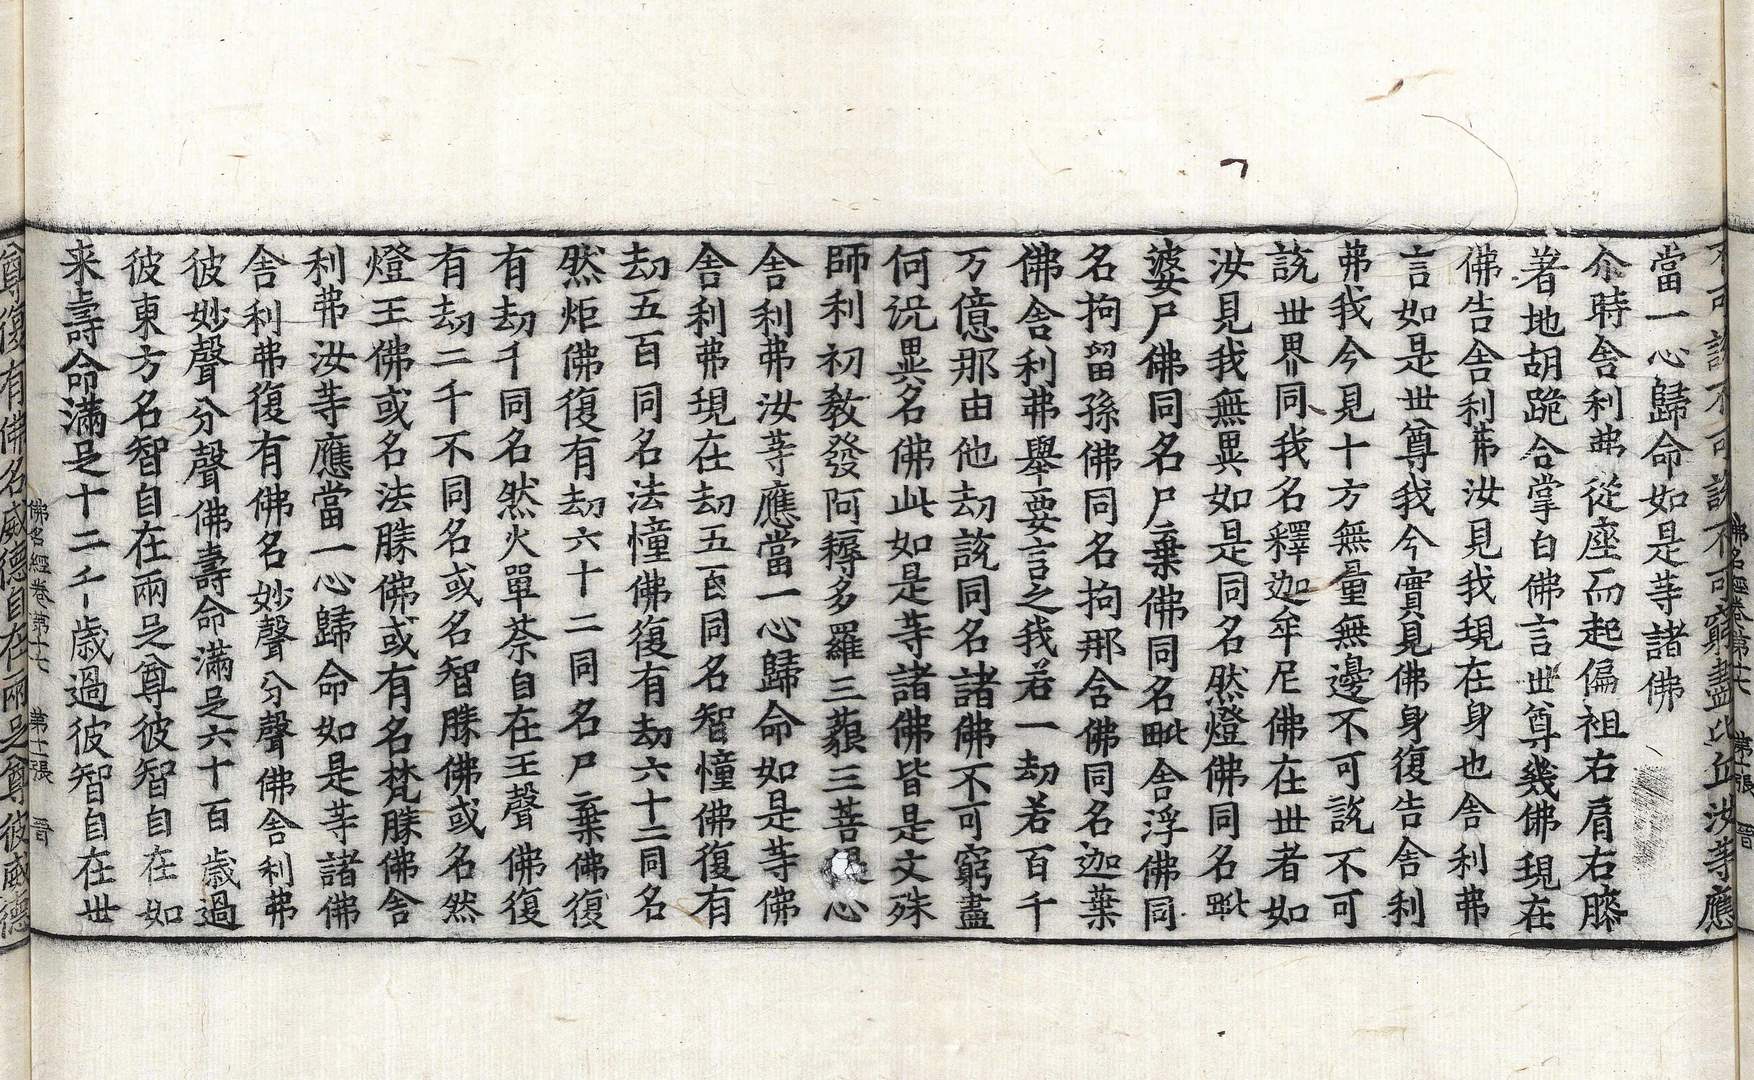 不可說不可說不可窮盡比丘汝等應
佛名經卷第十七 第十張 晉
當一心歸命如是等諸佛
尒時舎利弗從座而起偏袒右肩右膝
著地胡跪合掌白佛言世尊幾佛現在
佛告舎利弗汝見我現在身也舎利弗
言如是世尊我今實見佛身復告舎利
弗我今見十方無量無邊不可說不可
說世界同我名釋迦牟尼佛在世者如
汝見我無異如是同名然燈佛同名毗
婆尸佛同名尸棄佛同名毗舎浮佛同
名拘留孫佛同名拘那含佛同名迦葉
佛舎利弗舉要言之我若一劫若百千
万億那由他劫說同名諸佛不可窮盡
何況異名佛此如是等諸佛皆是文殊
師利初教發阿耨多羅三藐三菩提心
舎利弗汝等應當一心歸命如是等佛
舎利弗現在劫五百同名智憧佛復有
劫五百同名法憧佛復有劫六十二同名
然炬佛復有劫六十二同名尸棄佛復
有劫千同名然火單荼自在王聲佛復
有劫二千不同名或名智勝佛或名然
燈王佛或名法勝佛或有名梵勝佛舎
利弗汝等應當一心歸命如是等諸佛
舎利弗復有佛名妙聲分聲佛舎利弗
彼妙聲分聲佛壽命滿足六十百歲過
彼東方名智自在兩足尊彼智自在如
来壽命滿足十二千歲過彼智自在世
佛名經卷第十七 第十一張 晉
尊復有佛名威德自在兩足尊彼威德